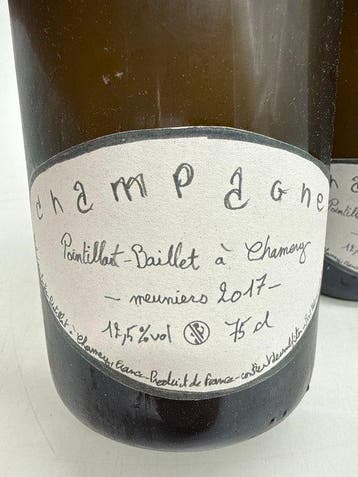 champagne
Pointillart-Baillet à Chamery
- meuniers 2017 -
12,5%vol 75 cl
Chamery France - Produit de France -